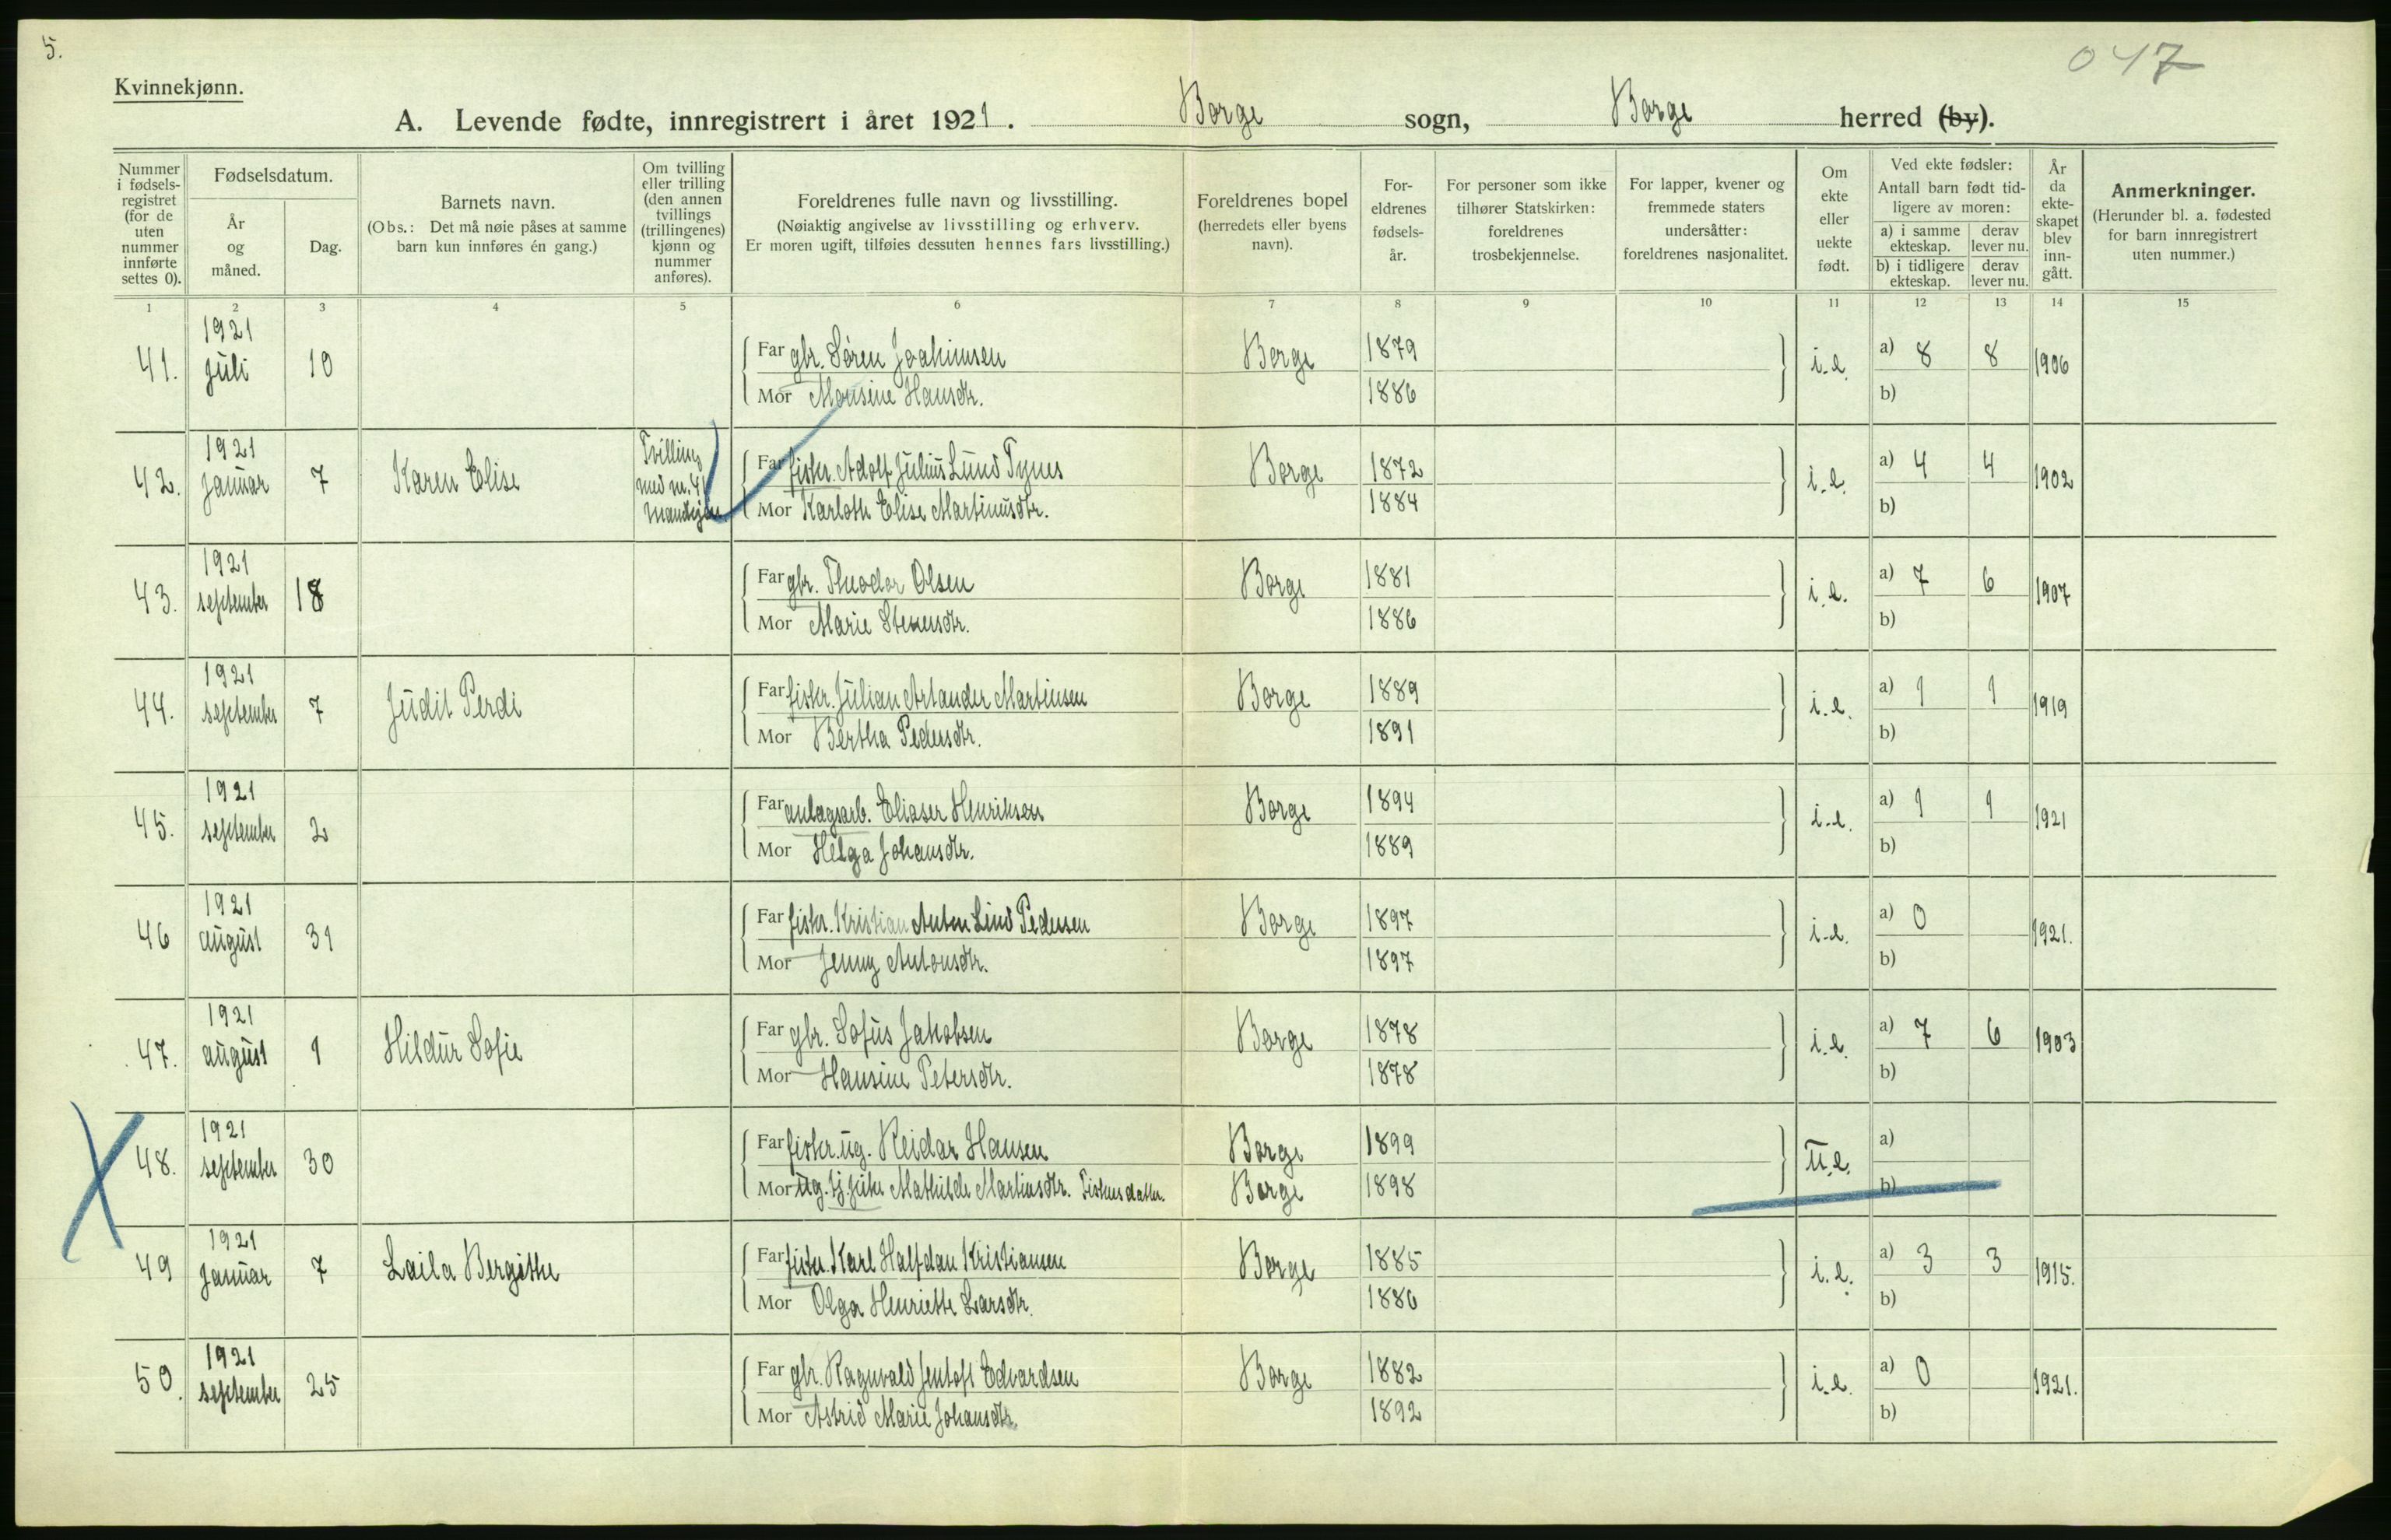 5.
047
Kvinnekjønn.
A. Levende fødte, innregistrert i året 1921. Borge sogn, Borge herred (by).
Nummer i fødsels-registret (for de uten nummer innførte settes 0).
Fødselsdatum.
År og måned.
Dag.
Barnets navn.
(Obs.: Det må nøie påses at samme barn kun innføres én gang.)
Om tvilling eller trilling (den annen tvillings (trillingenes) kjønn og nummer anføres).
Foreldrenes fulle navn og livsstilling.
(Nøiaktig angivelse av livsstilling og erhverv.
Er moren ugift, tilføies dessuten hennes fars livsstilling.)
Foreldrenes bopel
(herredets eller byens navn).
For-eldrenes fødsels-år.
For personer som ikke tilhører Statskirken: foreldrenes trosbekjennelse.
For lapper, kvener og fremmede staters undersåtter: foreldrenes nasjonalitet.
Om ekte eller uekte født.
Ved ekte fødsler:
Antall barn født tid-ligere av moren:
a) i samme ekteskap.
derav lever nu.
b) i tidligere ekteskap.
derav lever nu.
År da ekte-skapet blev inn-gått.
Anmerkninger.
(Herunder bl. a. fødested for barn innregistrert uten nummer.)
1 2 3 4 5 6 7 8 9 10 11 12 13 14 15
41. 1921 juli 10 Far gbr. Søren Joakimsen Borge 1879 i.e. a) 8 8 1906
Mor Monsine Hansdtr. 1886 b)
42. 1921 januar 7 Karen Elise Tvilling med nr. 41 Far fisker Adolf Julius Lund Tynes Borge 1872 i.e. a) 4 4 1902
Mor Karloth Elise Martinusdtr. 1884 b)
43. 1921 september 18 Far gbr. Theodor Olsen Borge 1881 i.e. a) 7 6 1907
Mor Marie Stenersdtr. 1886 b)
44. 1921 september 7 Judit Perdi Far fisker. Julian Artander Martinsen Borge 1889 i.e. a) 1 1 1919
Mor Bertha Pedersdtr. 1891 b)
45. 1921 september 2 Far anlagsarb. Eliaser Henriksen Borge 1894 i.e. a) 1 1 1921
Mor Helga Johansdtr. 1889 b)
46 1921 august 31 Far fisker. Kristian Anton Lind Pedersen Borge 1897 i.e. a) 0 1921.
Mor Jenny Antonsdtr. 1897 b)
47. 1921 august 1 Hildur Sofie Far gbr. Sofus Jakobsen Borge 1878 i.e. a) 7 6 1903
Mor Hansine Petersdtr. 1878 b)
48. 1921 september 30 Far fisker. ug. Reidar Hansen Borge 1899 u.e. a)
Mor ug. tj.pike Mathilde Martinsdtr. Fiskersdatter. Borge 1898 b)
49 1921 januar 7 Laila Bergitte Far fisker. Karl Halfdan Kristiansen Borge 1885 i.e. a) 3 3 1915.
Mor Olga Henriette Larsdtr. 1886 b)
50. 1921 september 25 Far gbr. Ragnvald Jentoft Edvardsen Borge 1882 i.e. a) 0 1921.
Mor Astrid Marie Johansdtr. 1892 b)